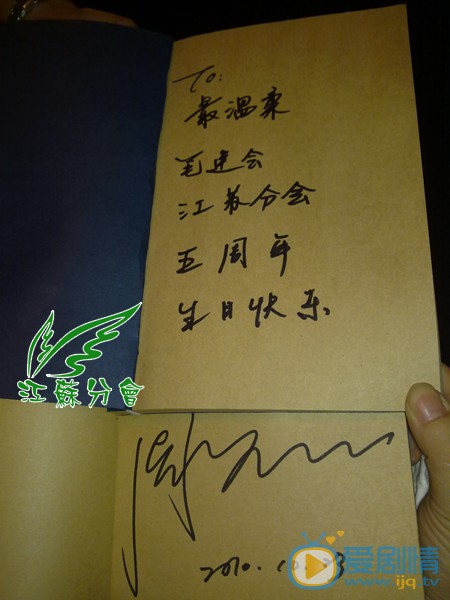 To:
最温柔
毛建会
江苏分会
五周年
生日快乐
江蘇分會
2010.10.23
爱剧情
www.ijq.tv